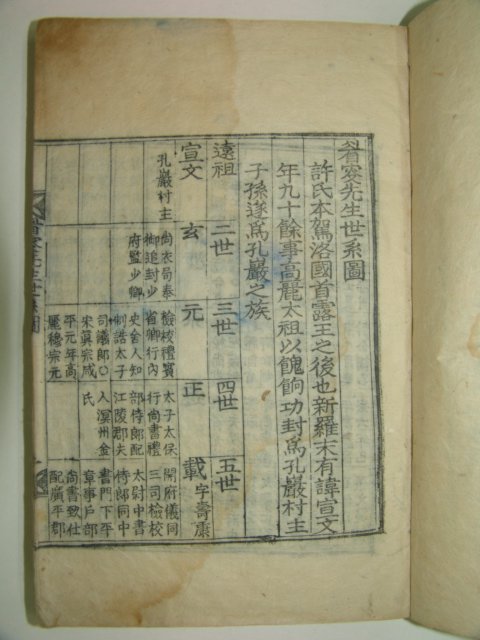 省先生世系圖
許氏本駕洛國首露王之後也新羅末有諱宣文
年九十餘事高麗太祖以餽餉功封爲孔巖村主
子孫遂爲孔巖之族
遠祖
宣文
孔巖村主
二世
玄
尙衣局奉
御追封少
府監少卿
三世
元
檢校禮賓
省卿行內
史舍人知
制誥太子
司議郞〇
宋眞宗咸
平元年高
麗穆宗元
四世
正
太子太保
行尙書禮
部侍郞配
江陵郡夫
人溟州金
氏
五世
載 字壽康
開府儀同
三司檢校
太尉中書
侍郞同中
書門下平
章事戶部
尙書致仕
配廣平郡
先生世系圖